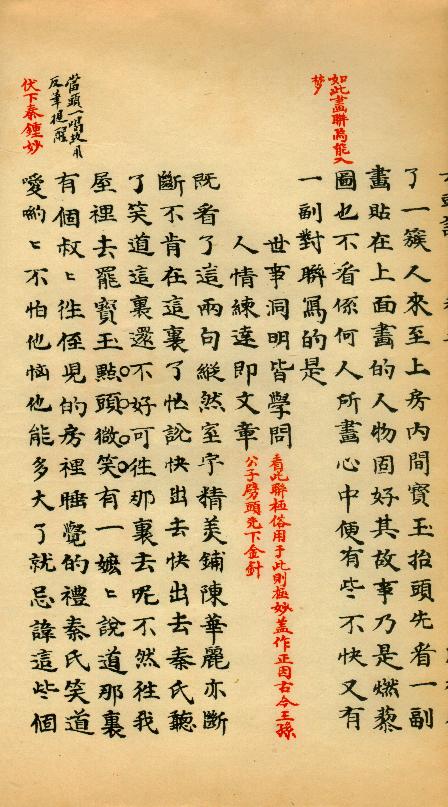 如此畫聯焉能入
夢
了一簇人來至上房内間寶玉抬頭先看一副
畫貼在上面畫的人物固好其故事乃是燃藜
圖也不看係何人所畫心中便有些不快又有
一副對聯寫的是
世事洞明皆學問
人情練達即文章
看此聯極俗用于此則極妙蓋作正因古今王孫
公子劈頭先下金針
既看了這兩句縱然室宇精美鋪陳華麗亦斷
斷不肯在這裏了忙說快出去快出去秦氏聽
了笑道這裏還不好可徃那裏去呢不然徃我
屋裡去罷寶玉點頭微笑有一嬷〻說道那裏
有個叔〻徃侄児的房裡睡覺的禮秦氏笑道
噯喲〻不怕他惱他能多大了就忌諱這些個
當頭一喝故用
反筆提醒
伏下秦鍾妙